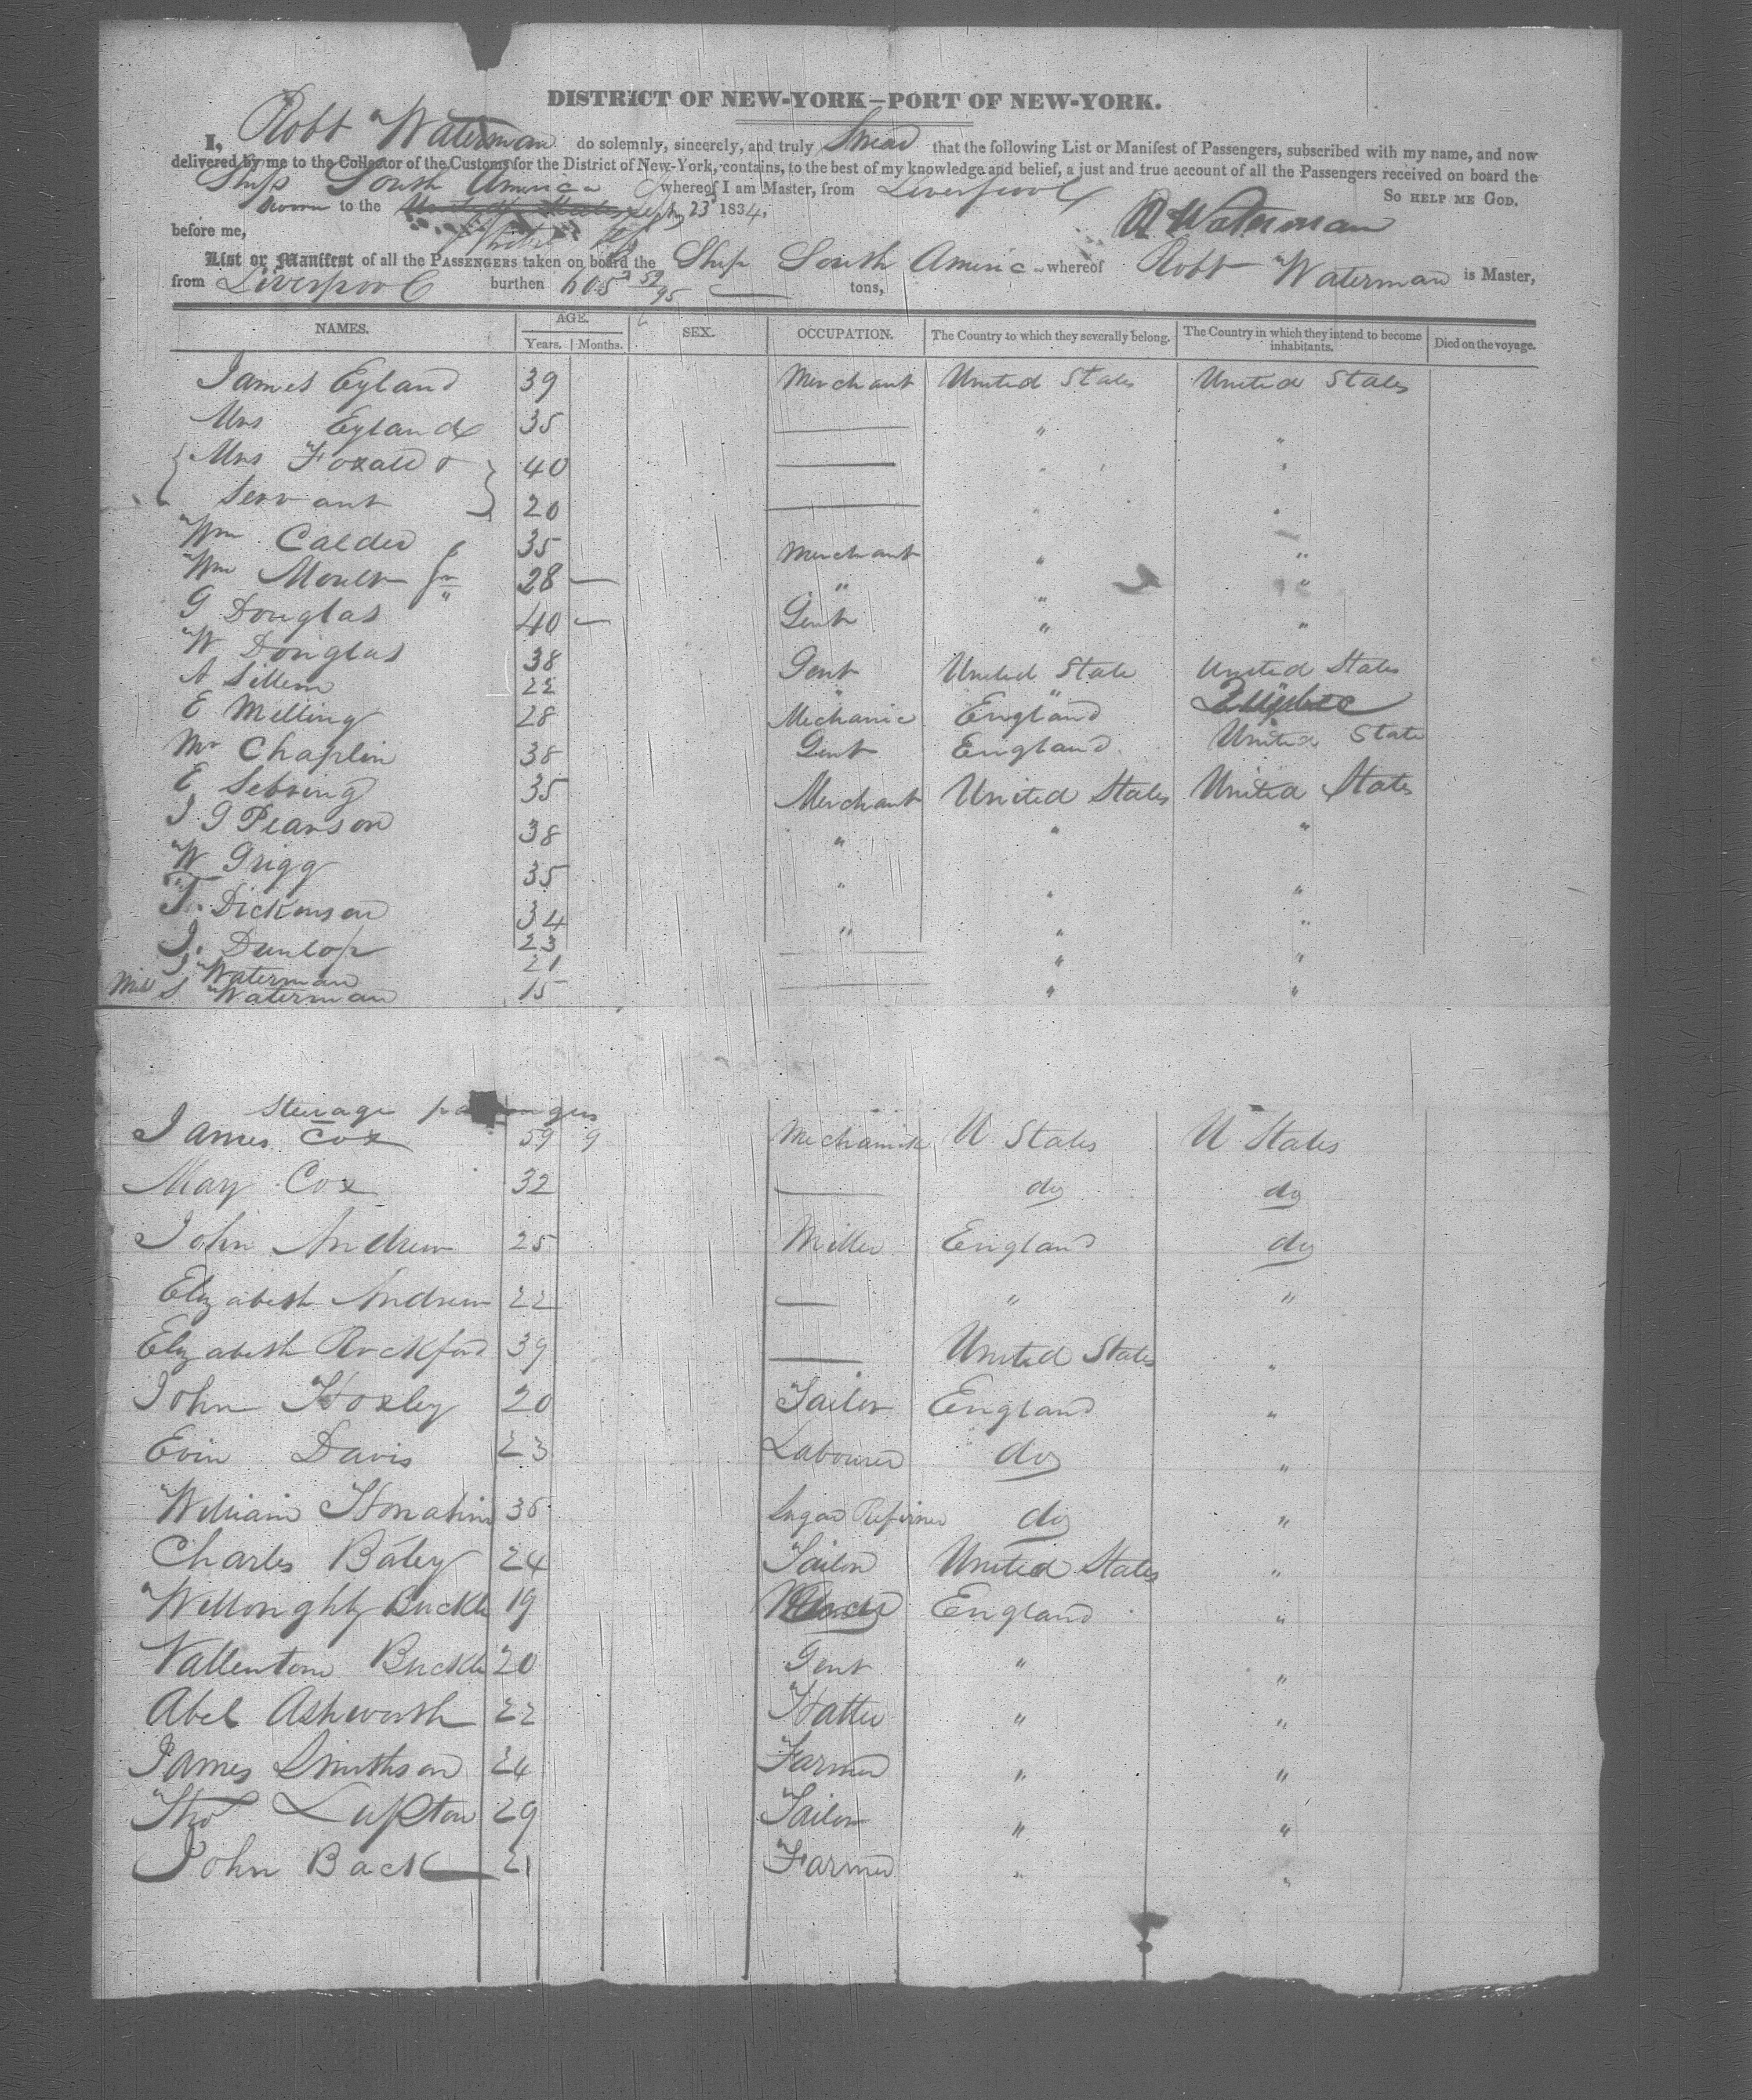 DISTRICT OF NEW-YORK—PORT OF NEW-YORK.
I, Robt Waterman do solemnly, sincerely, and truly Swear that the following List or Manifest of Passengers, subscribed with my name, and now
delivered by me to the Collector of the Customs for the District of New-York, contains, to the best of my knowledge and belief, a just and true account of all the Passengers received on board the
Ship South America whereof I am Master, from Liverpool
So HELP ME GOD.
Sworn to the Septr 23 1834,
R Waterman
before me,
List or Manifest of all the PASSENGERS taken on board the Ship South Americ whereof Robt Waterman is Master,
from Liverpool burthen 605 52/95 tons,
NAMES. AGE. Years. Months. SEX. OCCUPATION. The Country to which they severally belong. The Country in which they intend to become inhabitants. Died on the voyage.
James Eyland 39 Merchant United States United States
Mrs Eyland 35 — " "
Mrs Foxall & 40 — " "
Servant 20 — " "
Wm Calder 35 Merchant " "
Wm Moult Jr 28 — " " "
G Douglas 40 — Gent " "
W Douglas 38 Gent United State United States
A Sillem 22 " "
E Melling 28 Mechanic England
Mr Chaplin 38 Gent England United State
E Sebring 35 Merchant United States United States
J G Pearson 38 " " "
W Grigg 35 " " "
T. Dickinson 34 " " "
J. Dunlop 23
J Waterman 21 — " "
Miss S Waterman 15 — " "
Steerage passengers
James Cox 59 9 Mechanick U States U States
Mary Cox 32 — do do
John Andrew 25 Miller England do
Elizabeth Andrew 22 — " "
Elizabeth Rockford 39 — United States "
John Hoxley 20 Tailor England "
Evin Davis 23 Labourer do "
William 36 Sugar Refiner do "
Charles Baley 24 Tailor United States "
Willoughby Buckle 19 England "
Vallentine Buckle 20 Gent " "
Abel Ashworth 22 Hatter " "
James Smithson 24 Farmer " "
Thos Lupton 29 Tailor " "
John Back 21 Farmer " "